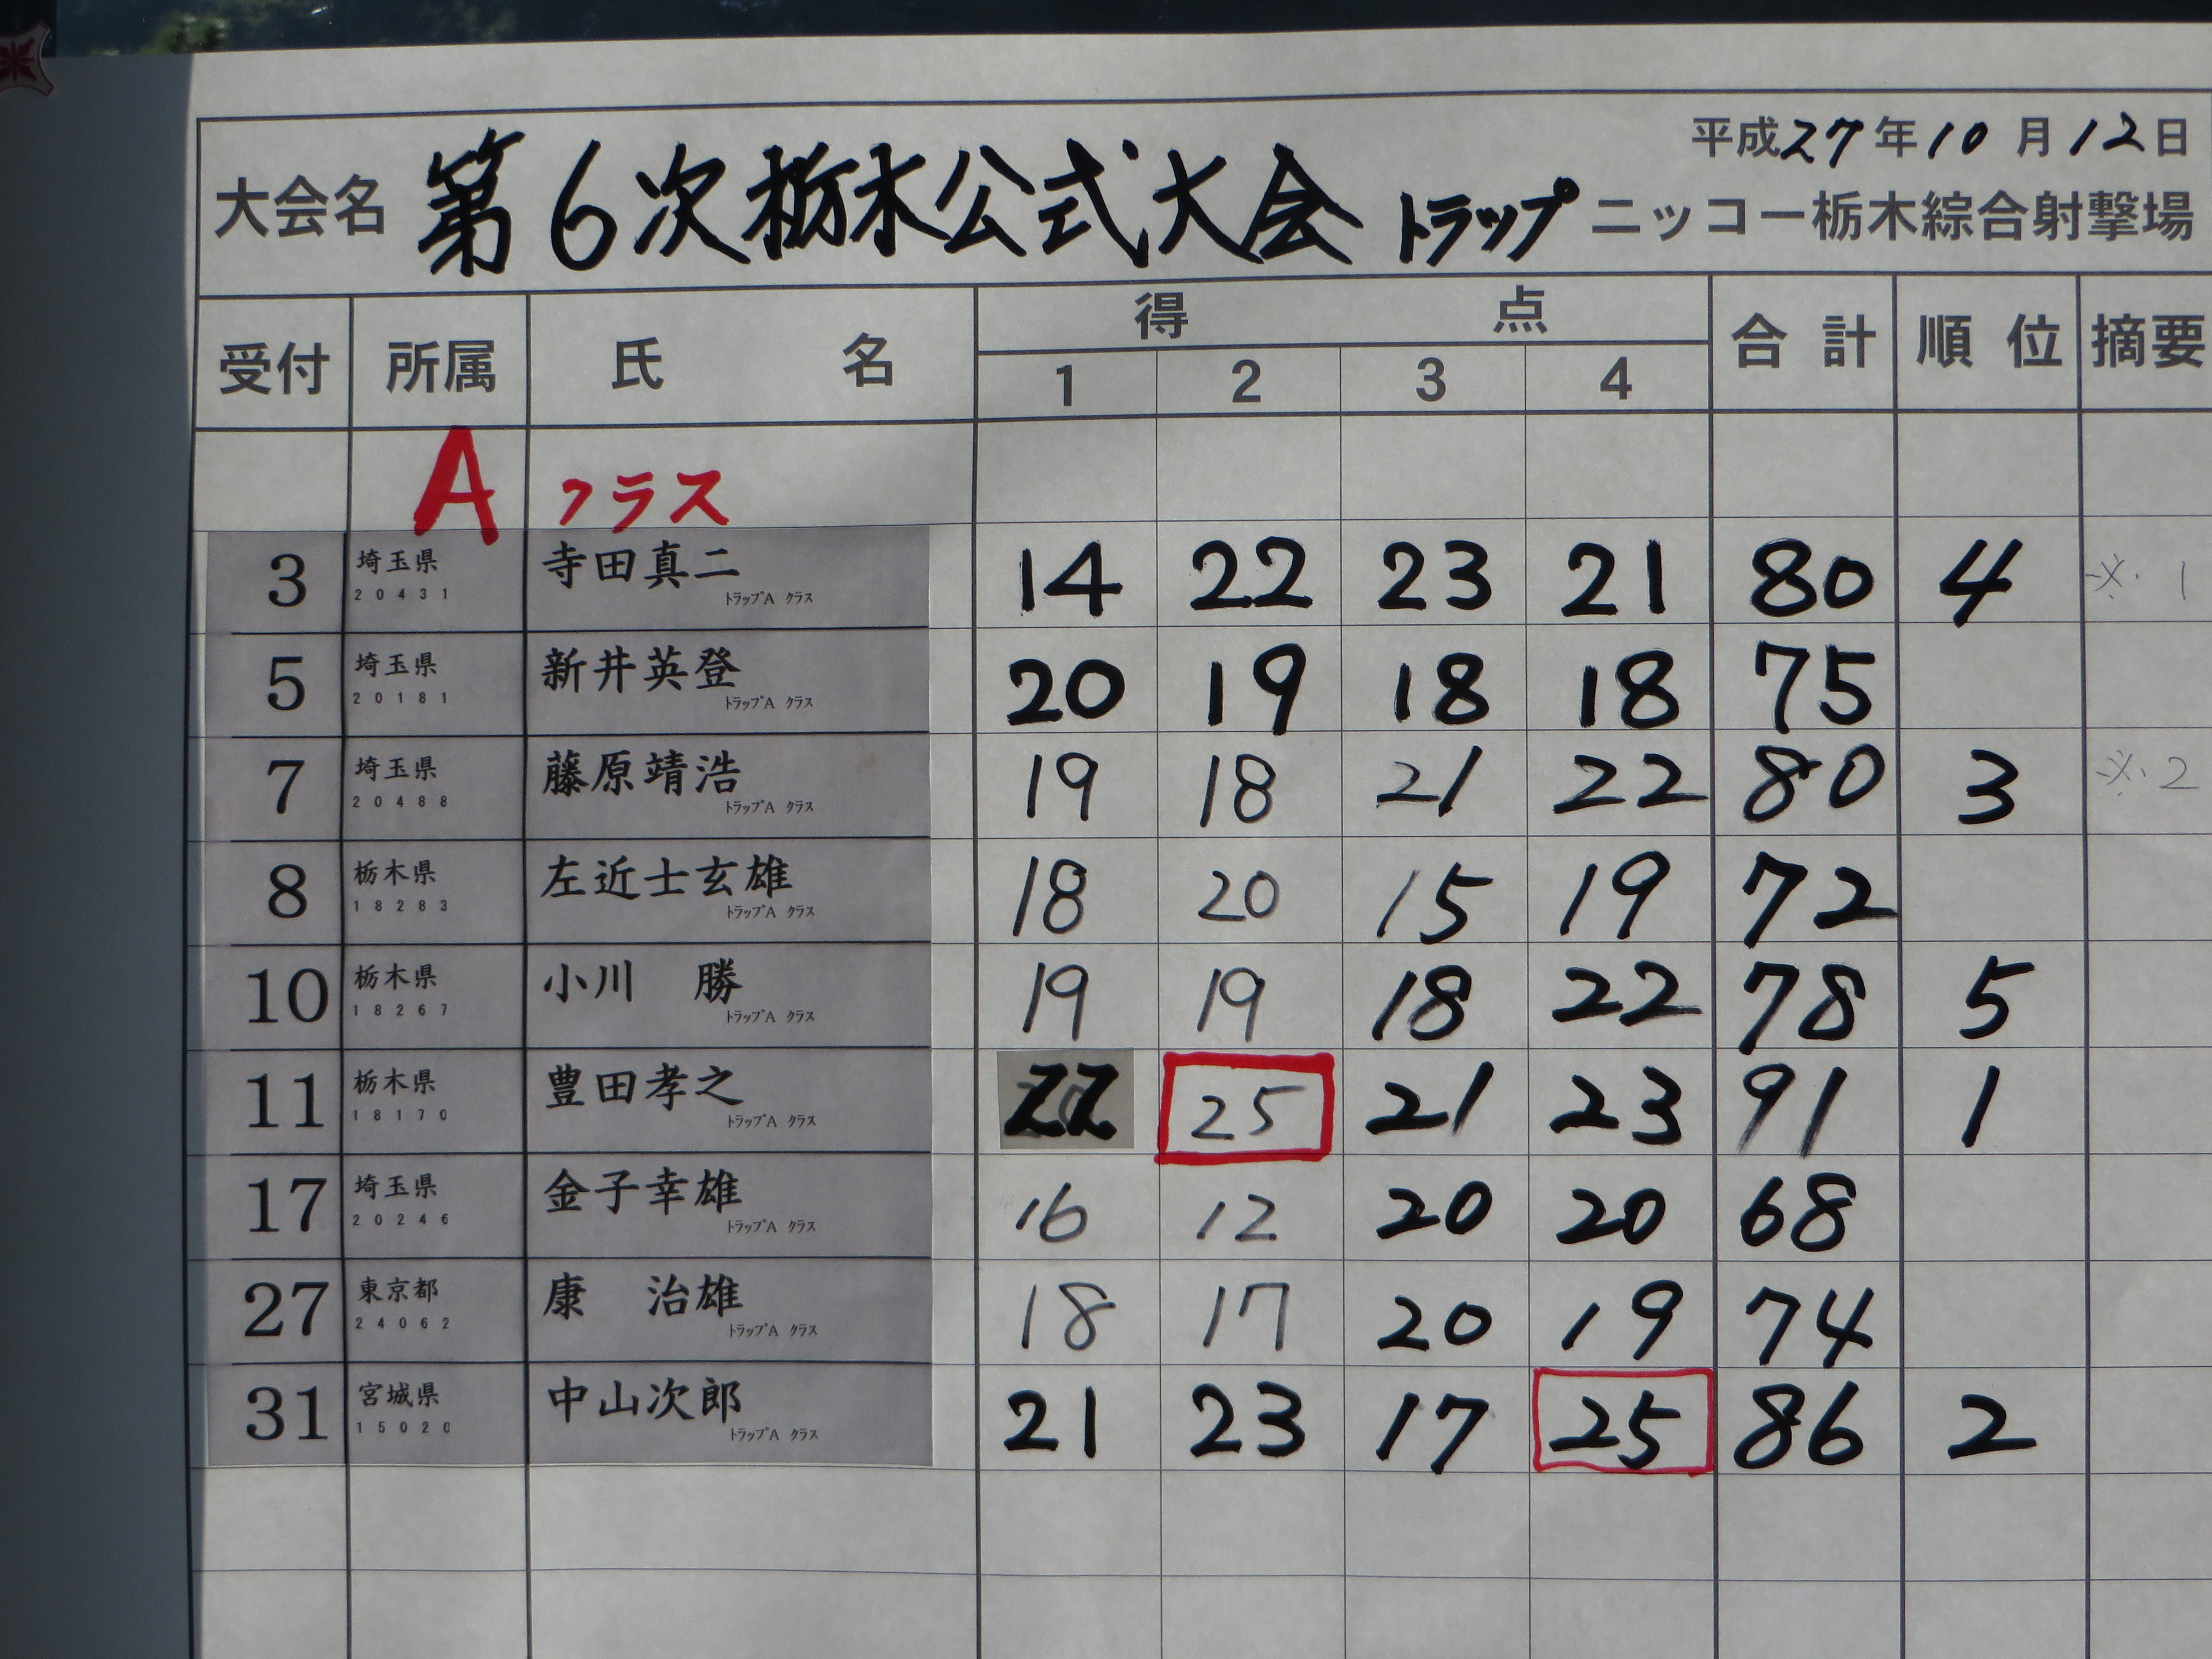 平成27年10月12日
大会名 第6次栃木公式大会 トラップ ニッコー栃木綜合射撃場
受付 所属 氏名 得点 合計 順位 摘要
1 2 3 4
A クラス
3 埼玉県 寺田真二 14 22 23 21 80 4 ※1
20431 トラップA クラス
5 埼玉県 新井英登 20 19 18 18 75
20181 トラップA クラス
7 埼玉県 藤原靖浩 19 18 21 22 80 3 ※2
20488 トラップA クラス
8 栃木県 左近士玄雄 18 20 15 19 72
18283 トラップA クラス
10 栃木県 小川 勝 19 19 18 22 78 5
18267 トラップA クラス
11 栃木県 豊田孝之 22 25 21 23 91 1
18170 トラップA クラス
17 埼玉県 金子幸雄 16 12 20 20 68
20246 トラップA クラス
27 東京都 康 治雄 18 17 20 19 74
24062 トラップA クラス
31 宮城県 中山次郎 21 23 17 25 86 2
15020 トラップA クラス